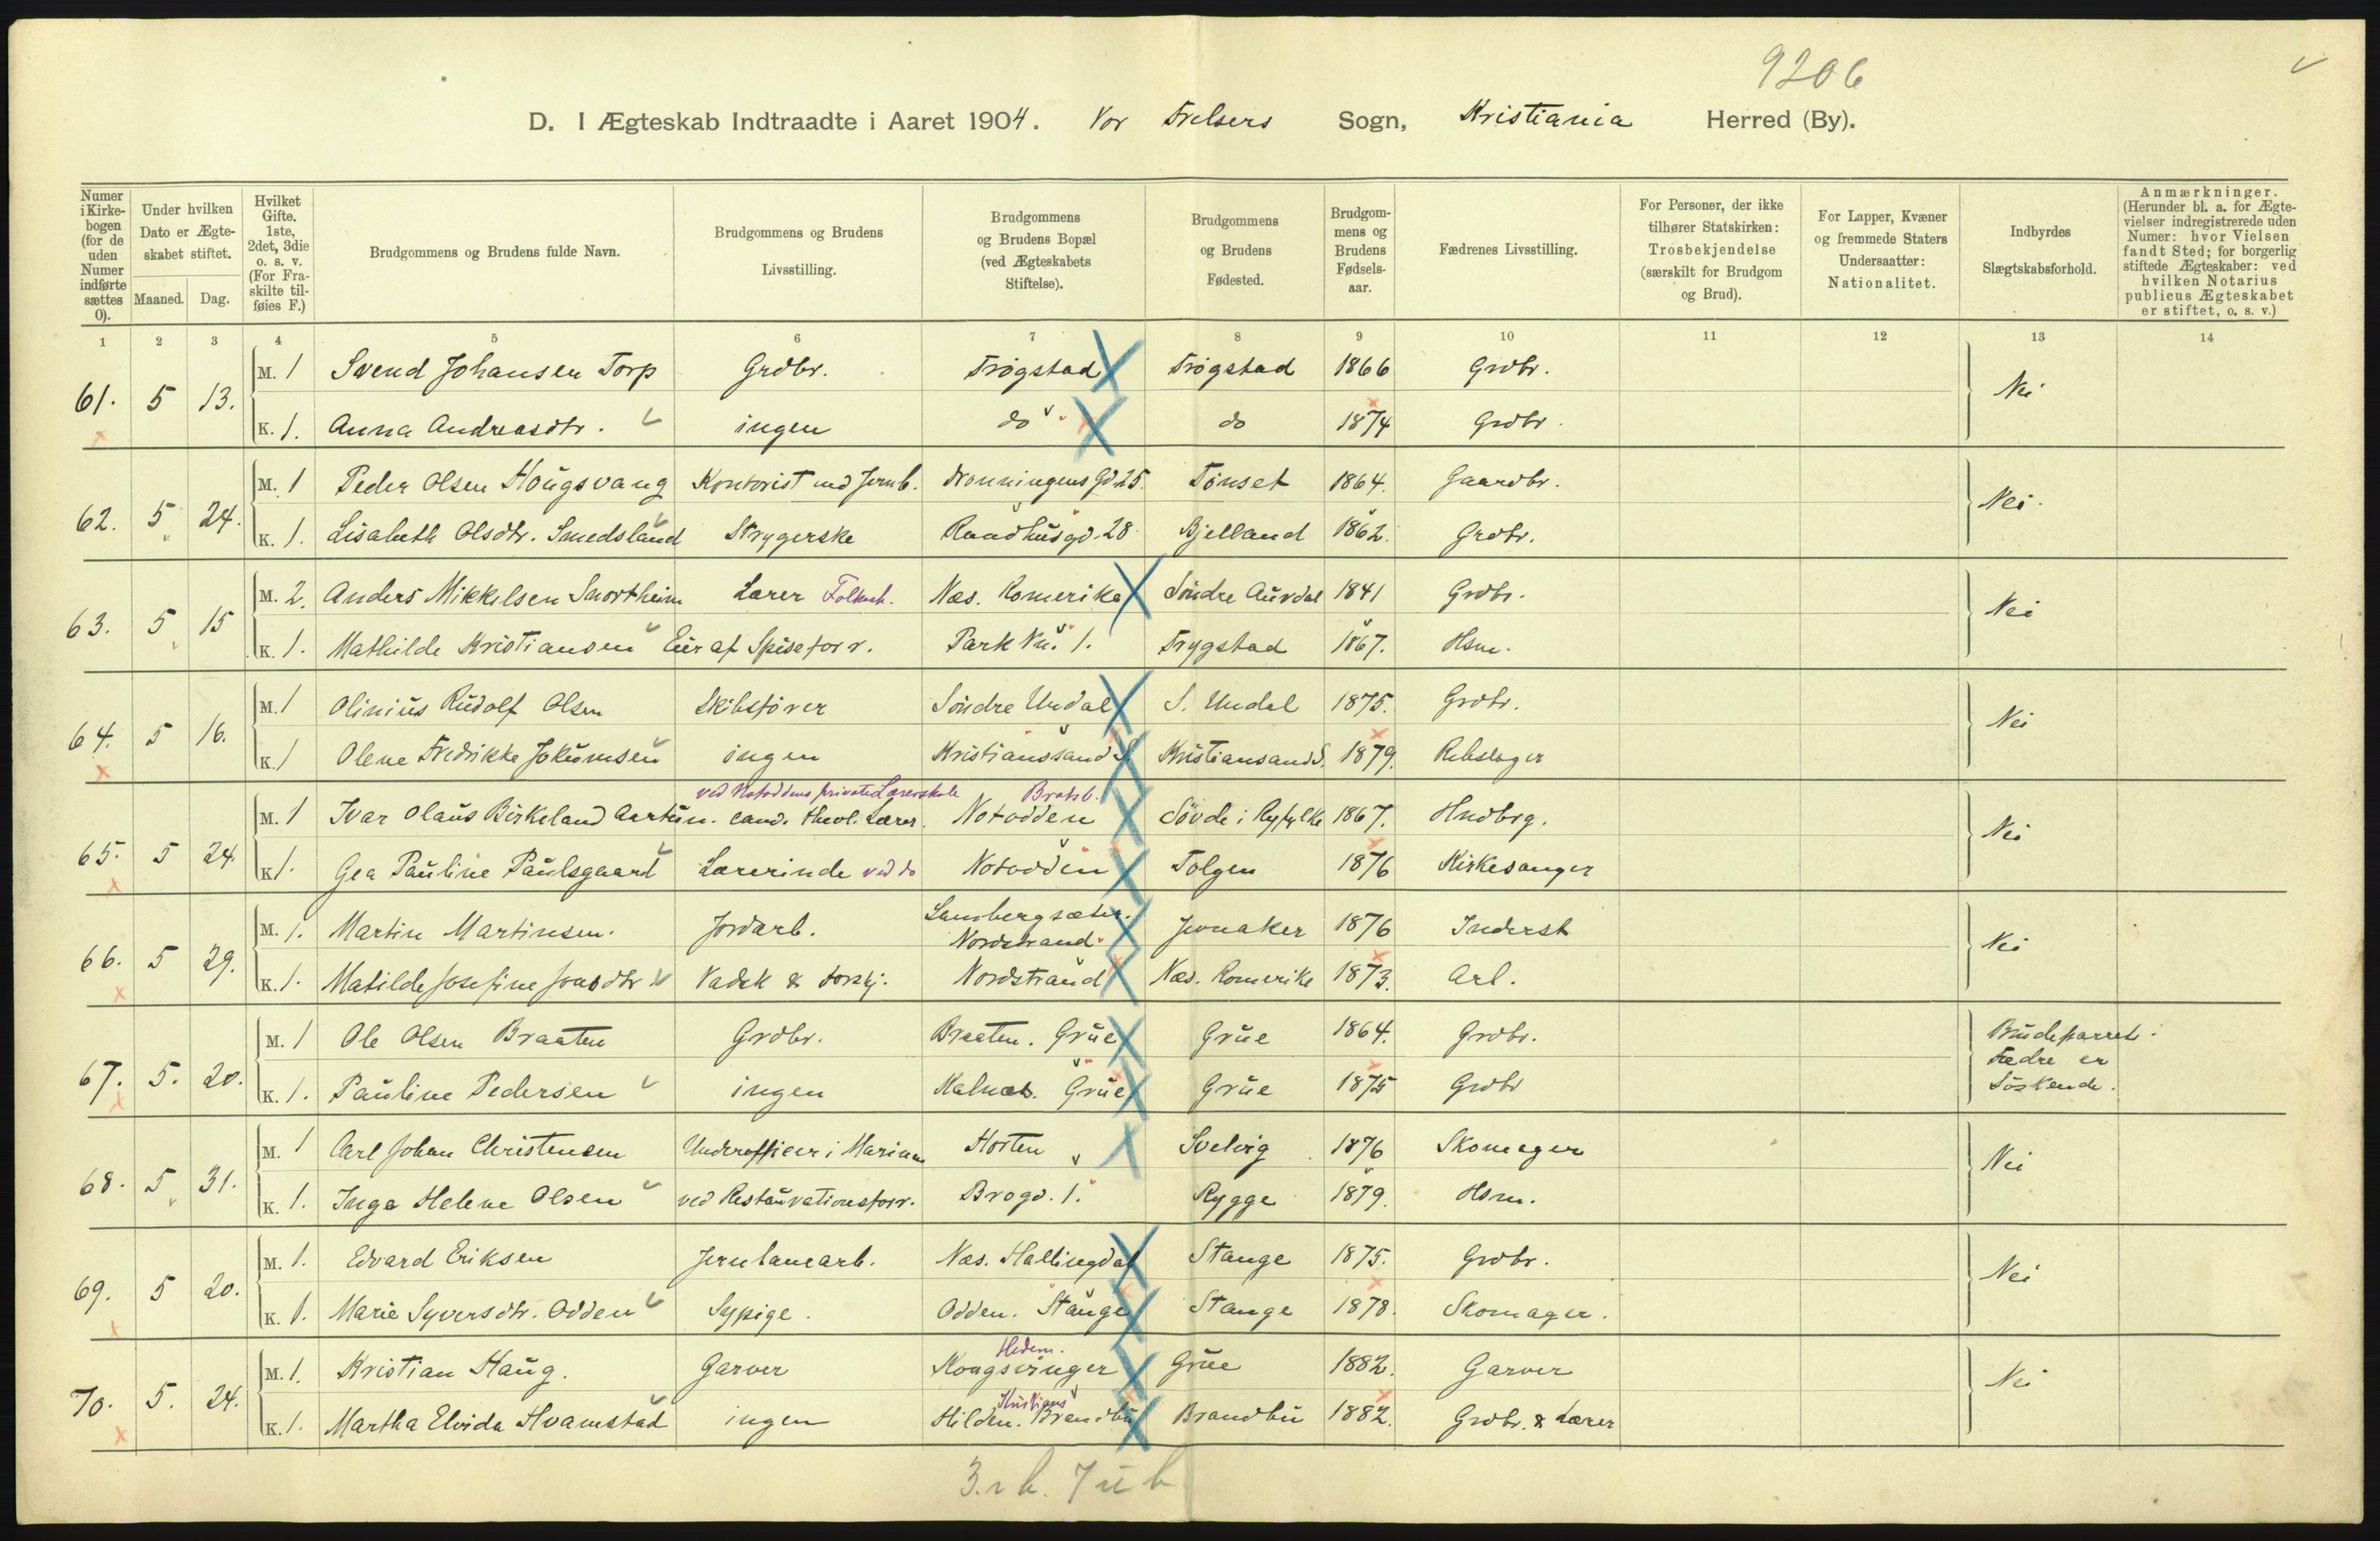 9206
D. I Ægteskab Indtraadte i Aaret 1904. Vor Frelsers Sogn, Kristiania Herred (By).
Numer i Kirkebogen (for de uden Numer indførte sættes 0).
Under hvilken Dato er Ægteskabet stiftet.
Maaned. Dag.
Hvilket Gifte. 1ste, 2det, 3die o. s. v. (For Fraskilte tilføies F.)
Brudgommens og Brudens fulde Navn.
Brudgommens og Brudens Livsstilling.
Brudgommens og Brudens Bopæl (ved Ægteskabets Stiftelse).
Brudgommens og Brudens Fødested.
Brudgommens og Brudens Fødselsaar.
Fædrenes Livsstilling.
For Personer, der ikke tilhører Statskirken: Trosbekjendelse (særskilt for Brudgom og Brud).
For Lapper, Kvæner og fremmede Staters Undersaatter: Nationalitet.
Indbyrdes Slægtskabsforhold.
Anmærkninger. (Herunder bl. a. for Ægtevielser indregistrerede uden Numer: hvor Vielsen fandt Sted; for borgerlig stiftede Ægteskaber: ved hvilken Notarius publicus Ægteskabet er stiftet, o. s. v.)
1 2 3 4 5 6 7 8 9 10 11 12 13 14
61. 5 13. M. 1 Svend Johansen Torp Grdbr. Trøgstad Trøgstad 1866 Grdbr. Nei
K. 1. Anna Andreasdtr. ingen do do 1874 Grdbr.
62. 5 24. M. 1 Peder Olsen Hougsvang Kontorist ved Jernb. Dronningens Gd. 25. Tønset 1864. Gaardbr. Nei.
K. 1. Lisabeth Olsdtr. Smedsland Strygerske Raadhusgd. 28 Bjelland 1862. Grdbr.
63. 5 15 M. 2. Anders Mikkelsen Snortheim Lærer Folkesk. Næs. Romerike Søndre Aurdal 1841 Grdbr. Nei
K. 1. Mathilde Kristiansen Eier af Spiseforr. Park Vn. 1. Trygstad 1867. Hsm.
64. 5 16. M. 1 Olinius Rudolf Olsen Skibsfører Søndre Undal S. Undal 1875. Grdbr. Nei
K. 1 Olene Fredrikke Jokumsen ingen Kristianssand S. Kristiansand S. 1879. Rebslager
ved Notoddens private Lærerskole Bratsb.
65. 5 24 M. 1 Ivar Olaus Birkeland Aartun. cand. theol. Lærer. Notodden Søvde i Ryfylke 1867. Hndbrg. Nei
K. 1. Gea Pauline Paulsgaard Lærerinde ved do Notodden Tolgen 1876 Kirkesanger
66. 5 29. M. 1. Martin Martinsen. Jordarb. Lambergsæter. Nordstrand. Jevnaker 1876 Inderst Nei
K. 1. Matilde Josefine Jonsdtr Vadsk & torskj. Nordstrand Næs. Romerike 1873. Arb.
67. 5. 20. M. 1 Ole Olsen Braaten Grdbr. Braaten. Grue Grue 1864. Grdbr. Brudeparrets Fædre er Søskende.
K. 1. Pauline Pedersen ingen Kalnæs. Grue Grue 1875 Grdbr
68. 5 31. M. 1 Carl Johan Christensen Underofficer i Marinen Horten Svelvig 1876 Skomager Nei
K. 1. Inga Helene Olsen ved Restaurationsforr. Brogd. 1. Rygge 1879. Hsm.
69. 5 20. M. 1. Edvard Eriksen Jernbanearb. Næs. Hallingdal Stange 1875. Grdbr. Nei
K. 1. Marie Syversdtr. Odden Sypige. Odden. Stange Stange 1878. Skomager.
Hedem.
70. 5. 24. M. 1. Kristian Haug. Garver Kongsvinger Grue 1882. Garver Nei
Kristians
K. 1. Martha Elvida Hvamstad ingen Hilden. Brandbu Brandbu 1882. Grdbr. & Lærer
3. r b. 7 u b